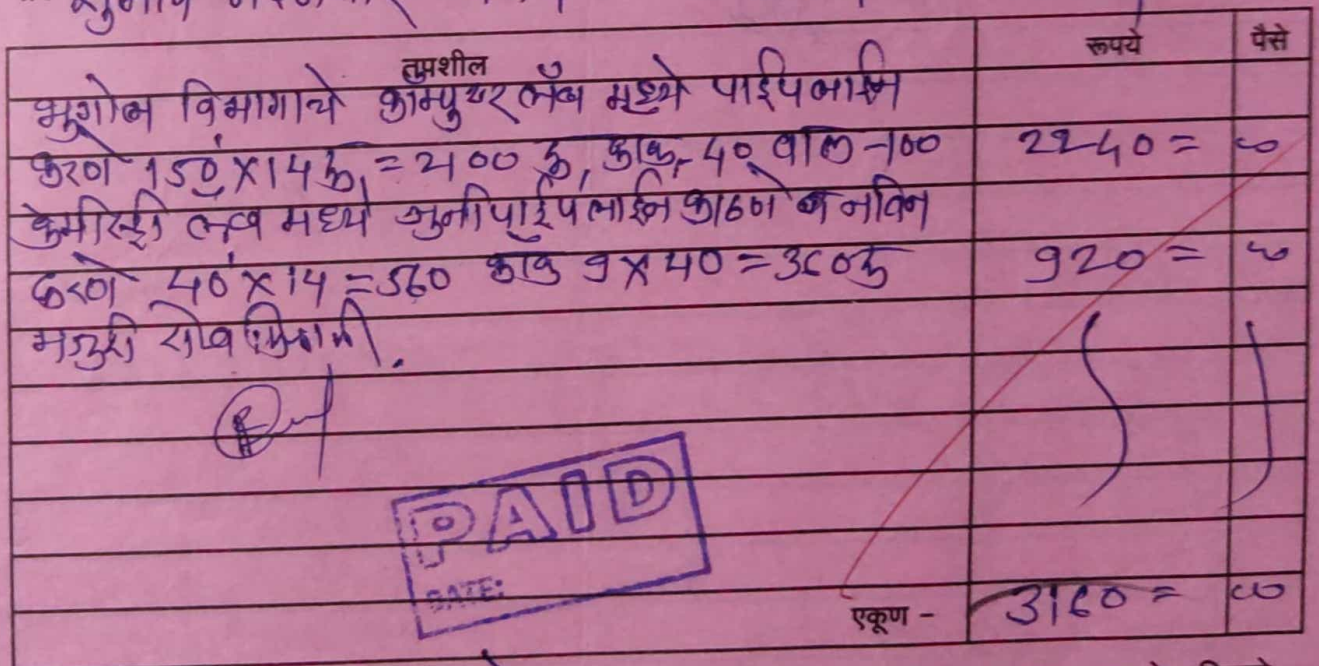 तपशील रूपये पैसे
भुगोल विभागाचे कॉम्प्युटर लॅब मध्ये पाईपलाईन
करणे 150 X 14 रु = 2100 रु, कॉक - 40 वॉल - 100 2240 = 00
केमीस्ट्री लॅब मध्ये जुनी पाईपलाईन काढणे व नविन
करणे 40' X 14 = 560 कॉक 9 X 40 = 360रु 920 = 00
मजुरी रोख मिळाली.
PAID
DATE:
एकूण - 3160 = 00